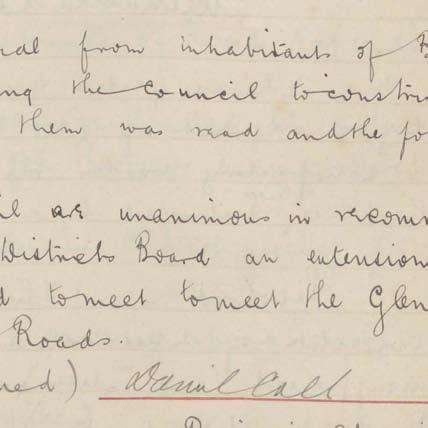 from inhabitants of
the Council to constr
them was read and the fo
are unanimous in recomm
Districts Board an extension
to meet to meet the Glen
Roads.
ned) Daniel Call